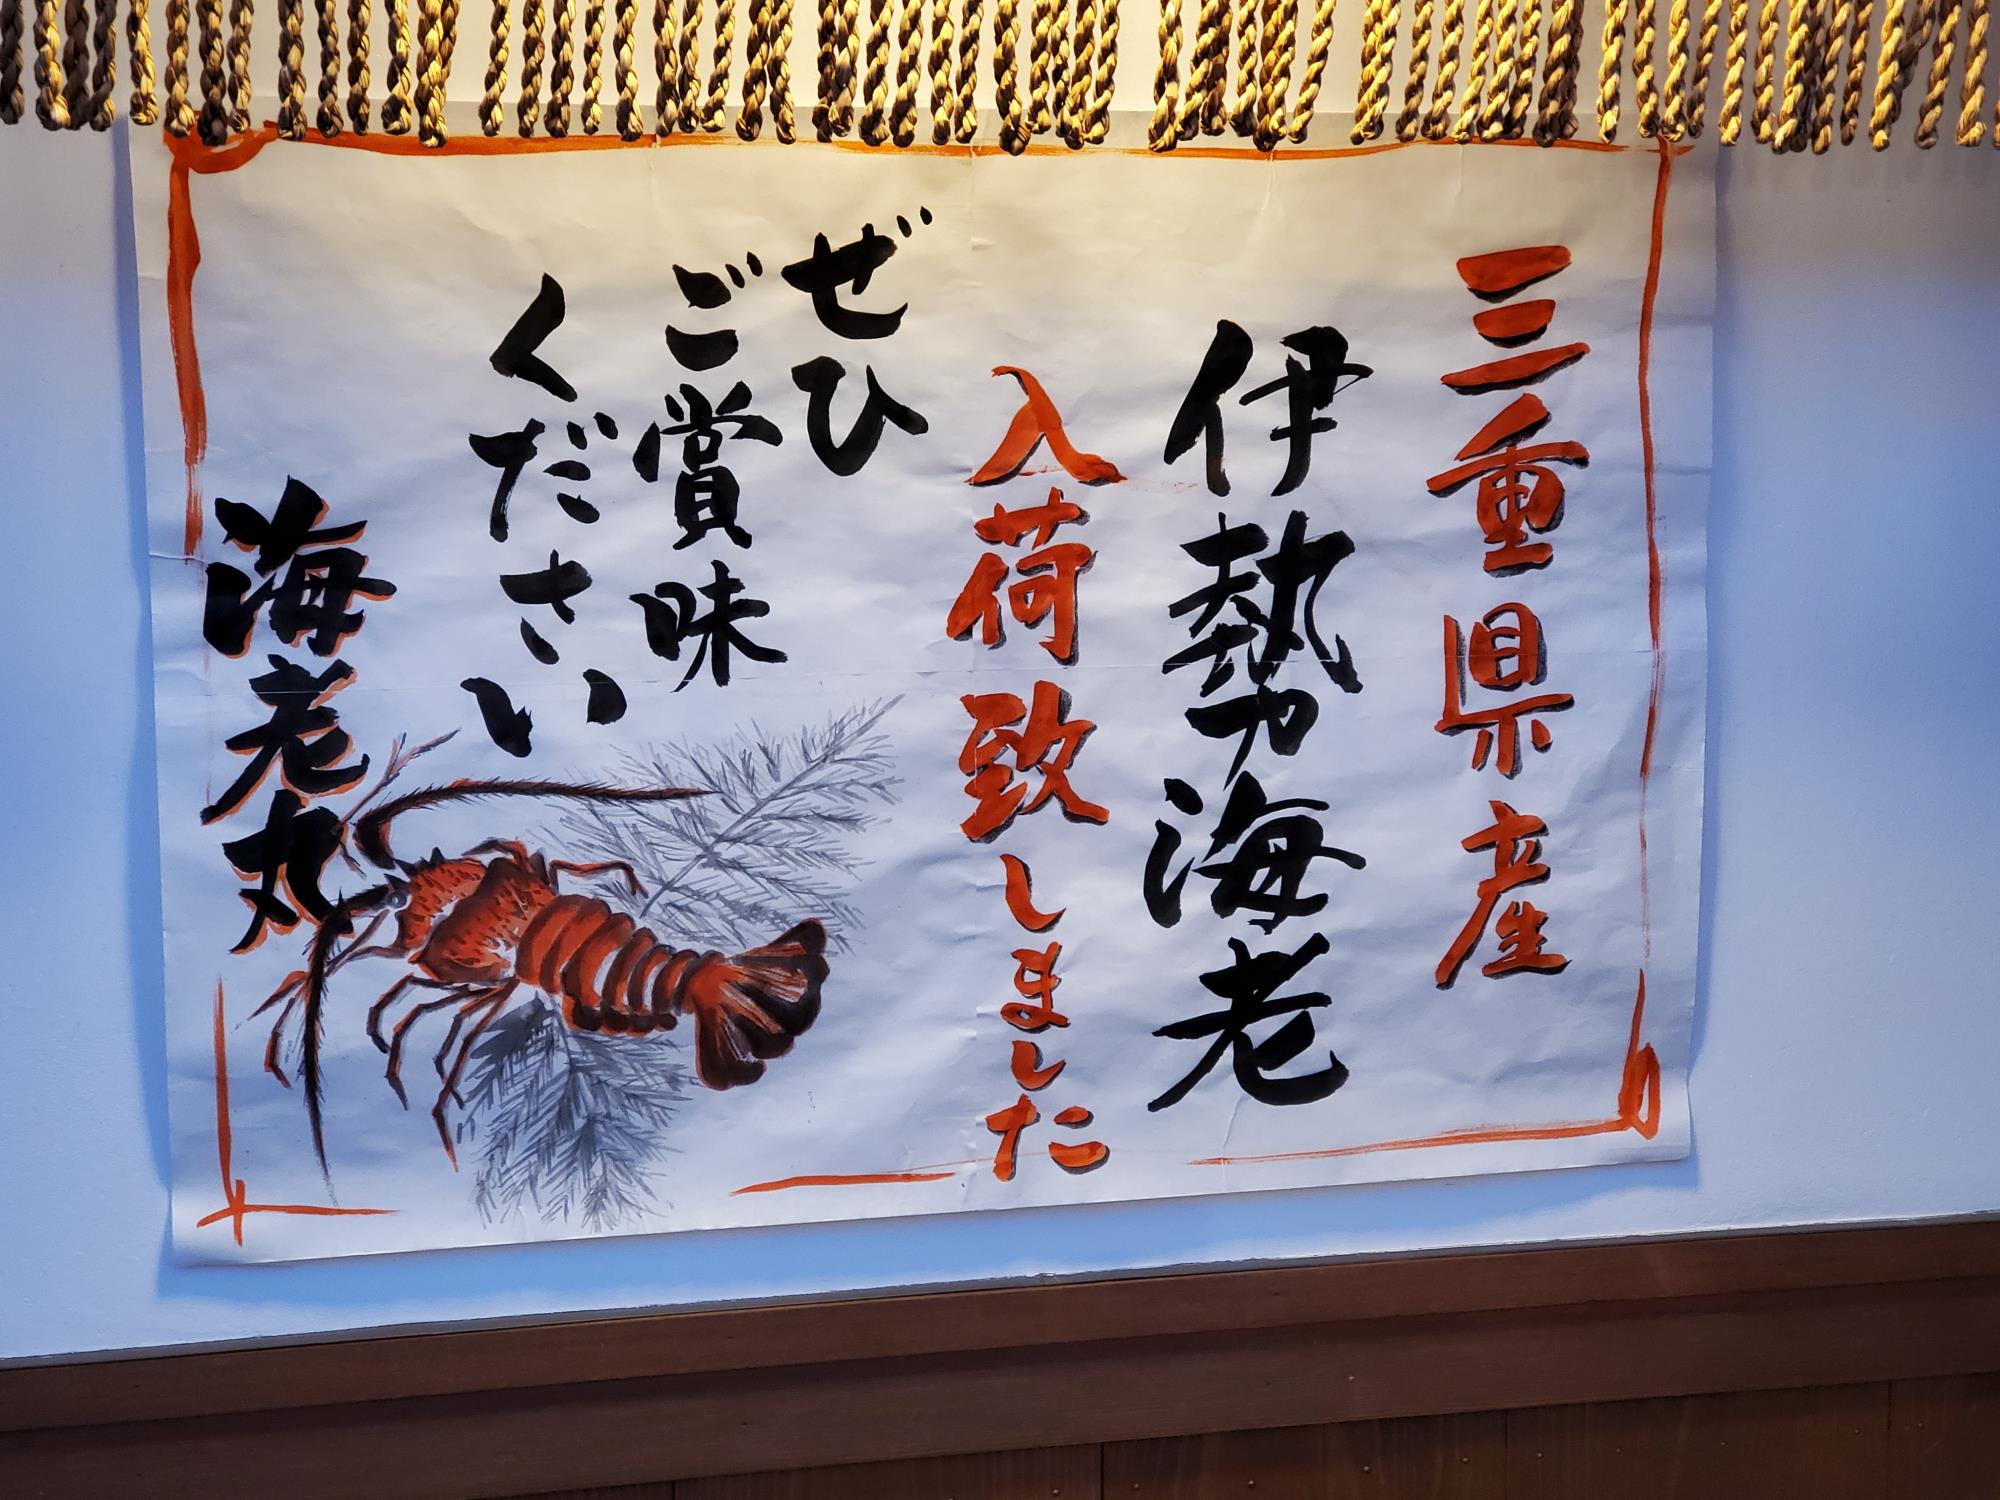 三重県産
伊勢海老
入荷致しました
ぜひ
ご賞味
ください
海老丸